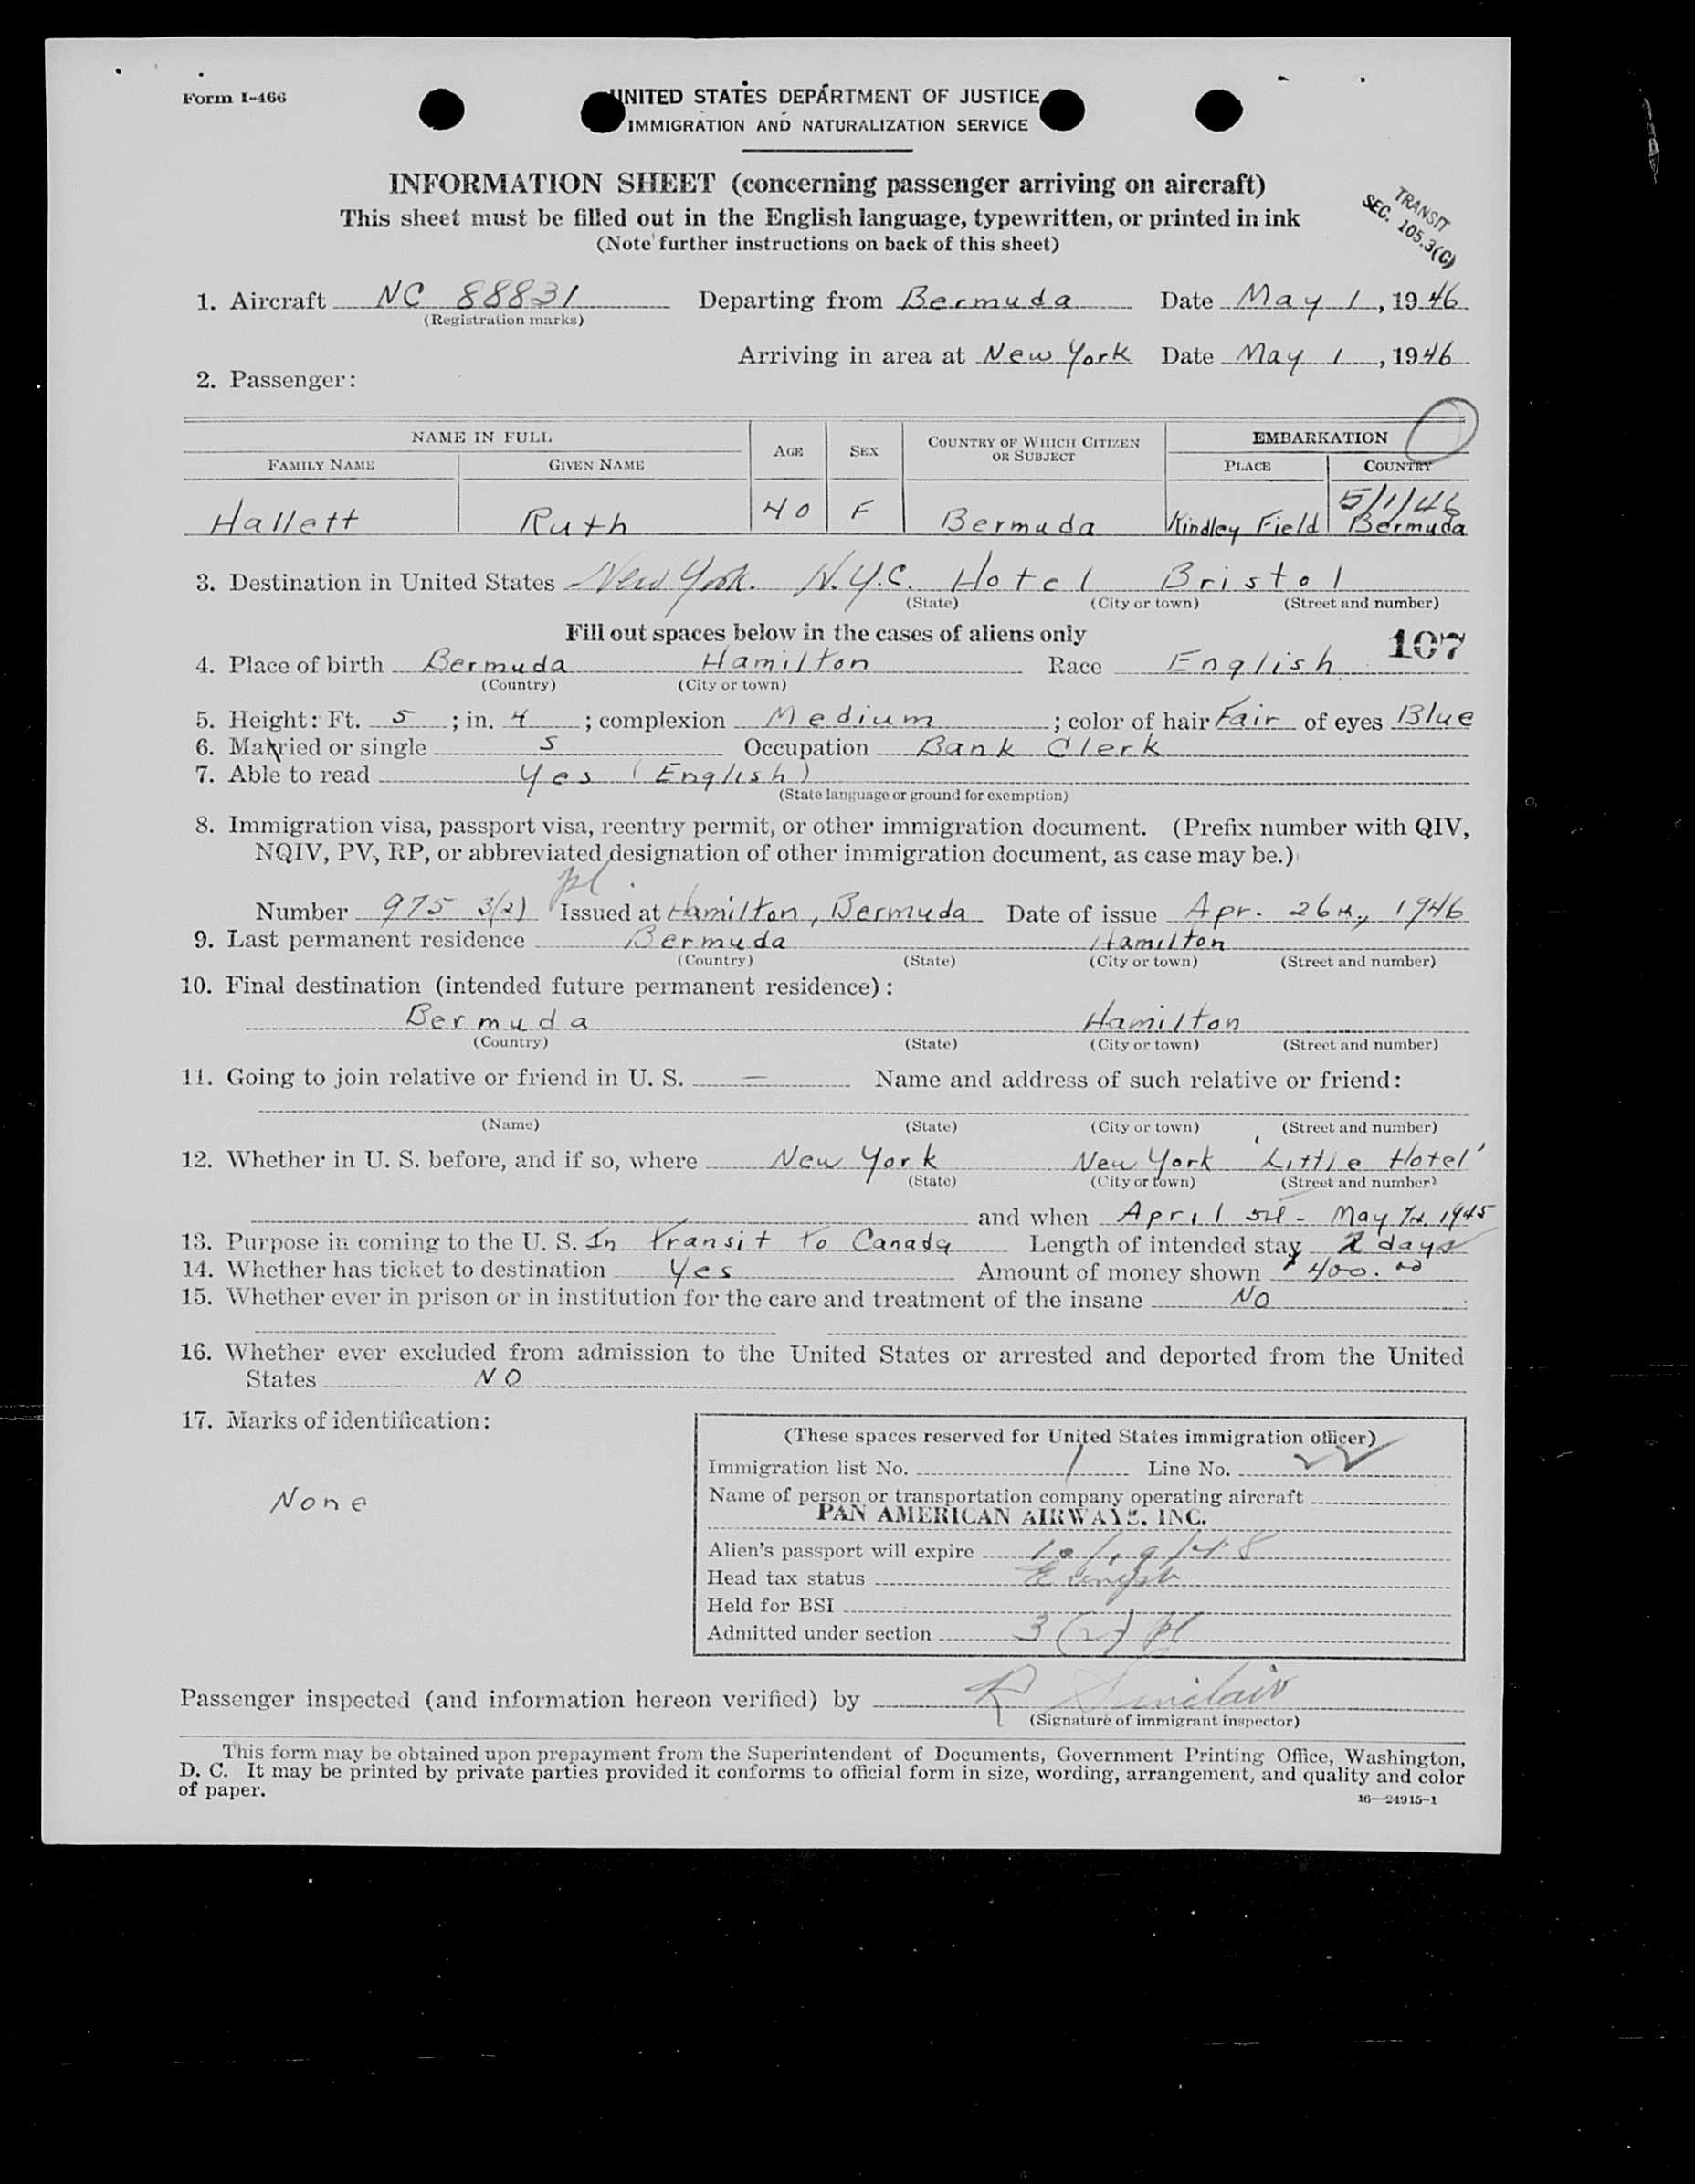 Form I-466
UNITED STATES DEPARTMENT OF JUSTICE
IMMIGRATION AND NATURALIZATION SERVICE
INFORMATION SHEET (concerning passenger arriving on aircraft)
This sheet must be filled out in the English language, typewritten, or printed in ink
(Note further instructions on back of this sheet)
TRANSIT
SEC. 105.3(C)
1. Aircraft NC 88831 Departing from Bermuda Date May 1, 1946
(Registration marks)
Arriving in area at New York Date May 1, 1946
2. Passenger:
NAME IN FULL AGE SEX COUNTRY OF WHICH CITIZEN OR SUBJECT EMBARKATION
FAMILY NAME GIVEN NAME PLACE COUNTRY
5/1/46
Hallett Ruth 40 F Bermuda Kindley Field Bermuda
3. Destination in United States New York. N.Y.C. Hotel Bristol
(State) (City or town) (Street and number)
Fill out spaces below in the cases of aliens only 107
4. Place of birth Bermuda Hamilton Race English
(Country) (City or town)
5. Height: Ft. 5; in. 4; complexion Medium; color of hair Fair of eyes Blue
6. Married or single S Occupation Bank Clerk
7. Able to read Yes (English)
(State language or ground for exemption)
8. Immigration visa, passport visa, reentry permit, or other immigration document. (Prefix number with QIV,
NQIV, PV, RP, or abbreviated designation of other immigration document, as case may be.)
pl.
Number 975 3(2) Issued at Hamilton, Bermuda Date of issue Apr. 26th, 1946
9. Last permanent residence Bermuda Hamilton
(Country) (State) (City or town) (Street and number)
10. Final destination (intended future permanent residence):
Bermuda Hamilton
(Country) (State) (City or town) (Street and number)
11. Going to join relative or friend in U. S. — Name and address of such relative or friend:
(Name) (State) (City or town) (Street and number)
12. Whether in U. S. before, and if so, where New York New York 'Little Hotel'
(State) (City or town) (Street and number)
and when April 5th - May 1945
13. Purpose in coming to the U. S. In transit to Canada Length of intended stay 2 days
14. Whether has ticket to destination Yes Amount of money shown $400.00
15. Whether ever in prison or in institution for the care and treatment of the insane NO
16. Whether ever excluded from admission to the United States or arrested and deported from the United
States NO
17. Marks of identification:
None
(These spaces reserved for United States immigration officer)
Immigration list No. 1 Line No.
Name of person or transportation company operating aircraft
PAN AMERICAN AIRWAYS, INC.
Alien's passport will expire 10/19/48
Head tax status Exempt
Held for BSI
Admitted under section 3(2) pl
Passenger inspected (and information hereon verified) by R Sinclair
(Signature of immigrant inspector)
This form may be obtained upon prepayment from the Superintendent of Documents, Government Printing Office, Washington,
D. C. It may be printed by private parties provided it conforms to official form in size, wording, arrangement, and quality and color
of paper.
16—24915-1